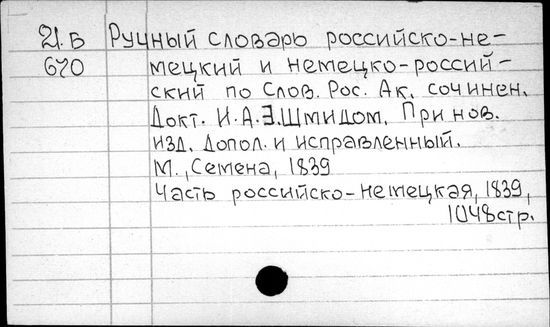 21.Б Ручный словарь российско-не-
670 мецкий и немецко-россий-
ский по Слов. Рос. Ак. сочинен.
Докт. И.А.Э.Шмидом. При нов.
изд. допол. и исправленный.
М., Семена, 1839
Часть российско-немецкая, 1839,
1048стр.